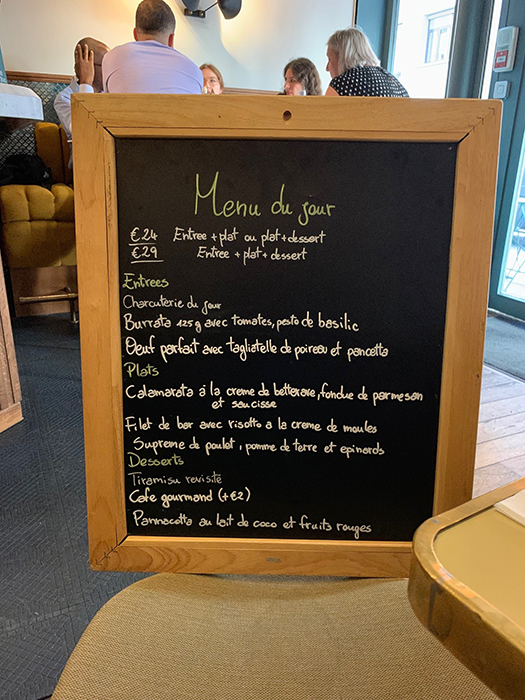 Menu du jour
€24 Entree + plat ou plat + dessert
€29 Entree + plat + dessert
Entrees
Charcuterie du jour
Burrata 125g avec tomates, pesto de basilic
Oeuf parfait avec tagliatelle de poireau et pancetta
Plats
Calamarata á la creme de betterave, fondue de parmesan
et saucisse
Filet de bar avec risotto a la creme de moules
Supreme de poulet, pomme de terre et epinards
Desserts
Tiramisu revisité
Cafe gourmand (+€2)
Pannacotta au lait de coco et fruits rouges